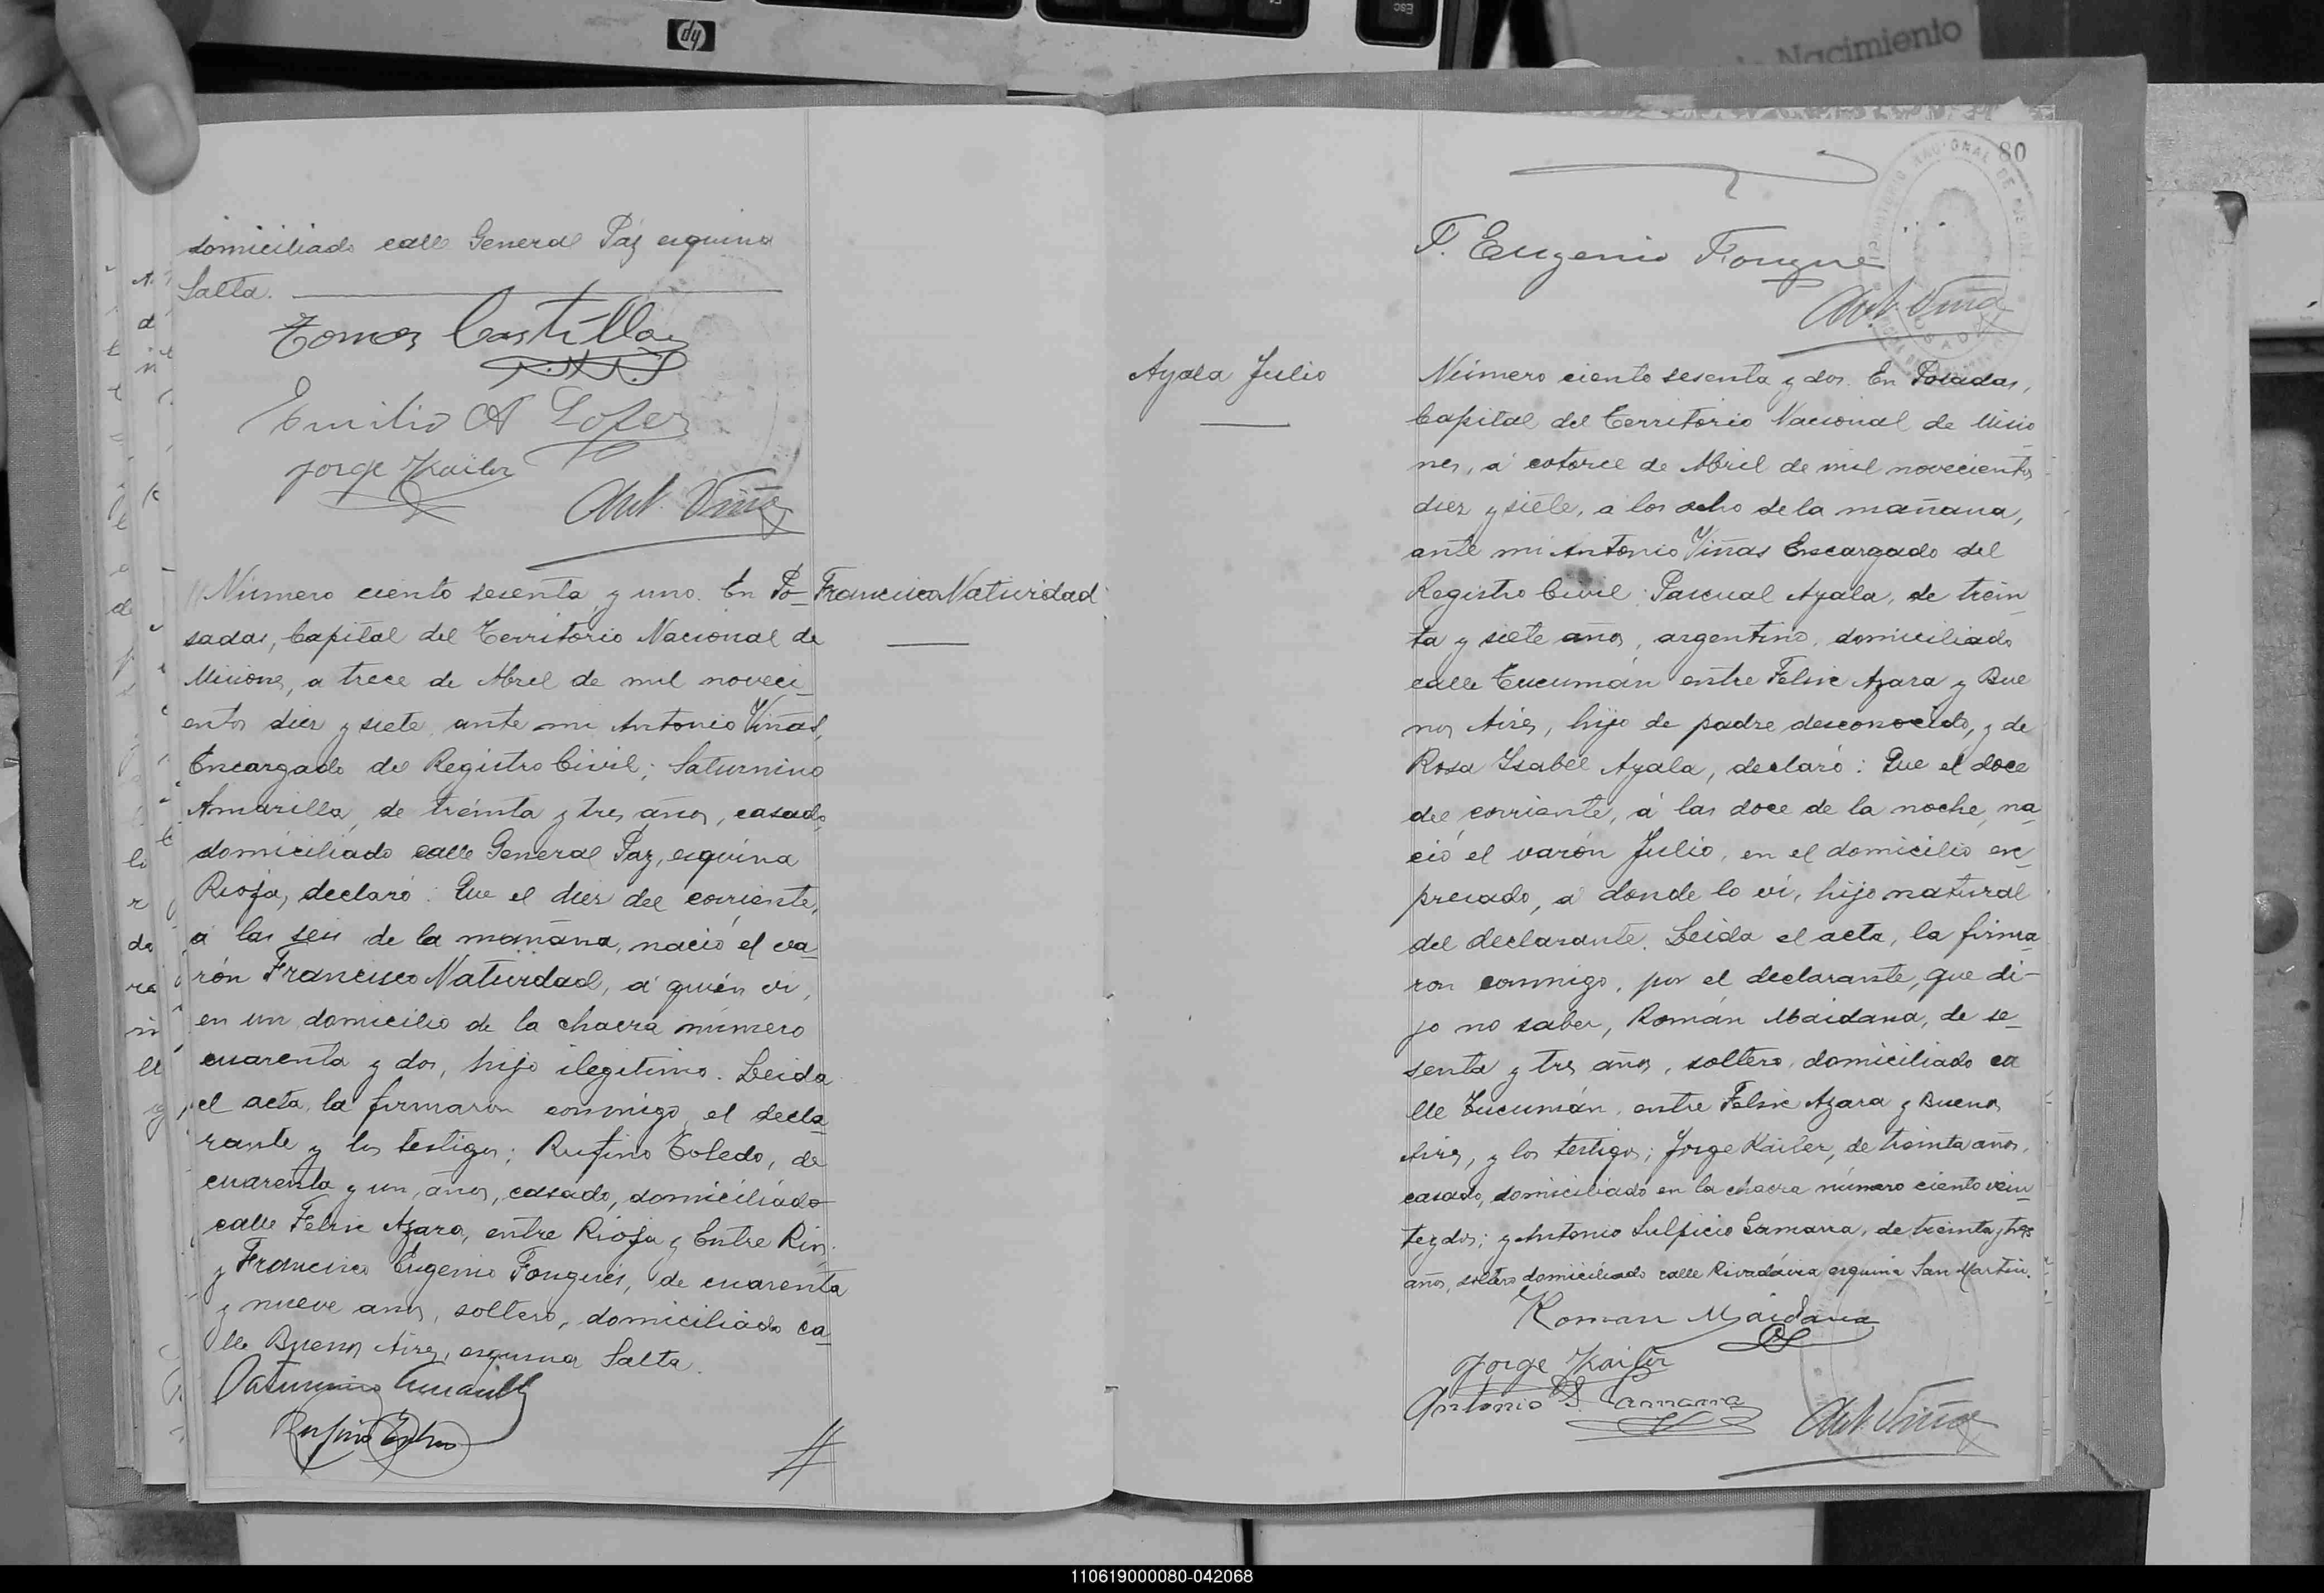 hp
ESC
Nacimiento
domiciliado calle General Paz esquina
Salta.
Tomás Castilla
Emilio A Lopez
Jorge Kailer
Ant. Viñas
Número ciento sesenta y uno. En Po-
Francisco Natividad
sadas, Capital del Territorio Nacional de
Misiones, a trece de Abril de mil noveci
entos diez y siete, ante mi Antonio Viñas,
Encargado del Registro Civil; Saturnino
Amarilla, de treinta y tres años, casado,
domiciliado calle General Paz, esquina
Rioja, declaró: Que el diez del corriente,
a las seis de la mañana, nació el va-
rón Francisco Natividad, á quién vi,
en un domicilio de la chacra número
cuarenta y dos, hijo ilegitimo. Leida
el acta, la firmaron conmigo, el decla-
rante y los testigos; Rufino Toledo, de
cuarenta y un, años, casado, domiciliado
calle Felix Azara, entre Rioja y Entre Rios.
y Francisco Eugenio Fougués, de cuarenta
y nueve años, soltero, domiciliado ca-
lle Buenos Aires, esquina Salta.
Saturnino Amarilla
Rufino Toledo
80
F. Eugenio Fougue
Ant. Viñas
Ayala Julio
Número ciento sesenta y dos. En Posadas,
Capital del Territorio Nacional de Misio
nes, á catorce de Abril de mil novecientos
diez y siete, a los ocho de la mañana,
ante mi Antonio Viñas Encargado del
Registro Civil; Pascual Ayala, de trein
ta y siete años, argentino, domiciliado
calle Tucumán entre Felix Azara y Bue
nos Aires, hijo de padre desconocido, y de
Rosa Ysabel Ayala, declaró: Que el doce
del corriente, á las doce de la noche, na-
ció el varón Julio, en el domicilio ex-
presado, á donde lo vi, hijo natural
del declarante. Leida el acta, la firma-
ron conmigo, por el declarante, que di-
jo no saber, Román Maidana, de se-
senta y tres años, soltero, domiciliado ca
lle Tucumán, entre Felix Azara y Buenos
Aires, y los testigos; Jorge Kailer, de treinta años,
casado, domiciliado en la chacra número ciento vein-
te y dos; y Antonio Sulpicio Gamarra, de treinta y tres
años, soltero domiciliado calle Rivadavia esquina San Martin.
Roman Maidana
Jorge Kailer
Antonio S. Gamarra
Ant. Viñas
110619000080-042068